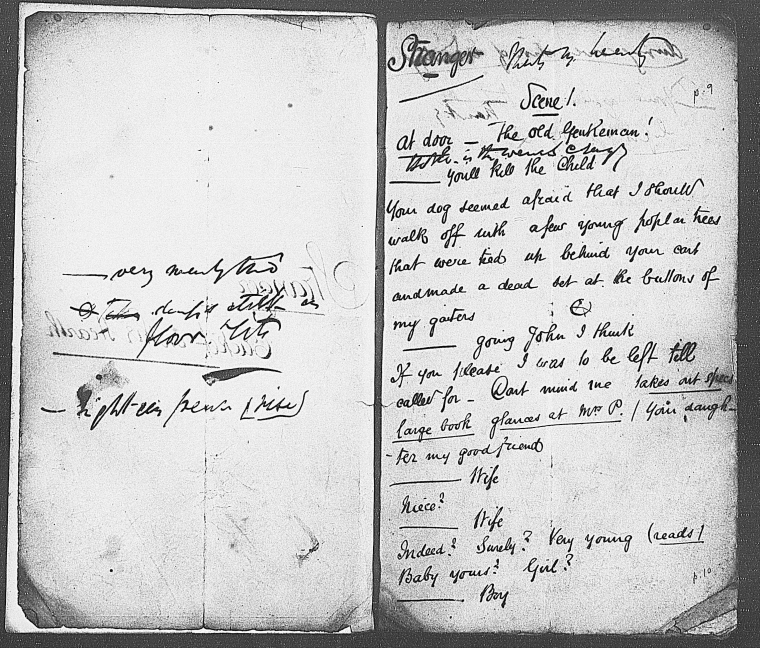 — very nearly two
floor
— Eighteen pence (rises)
Stranger
p. 9
Scene 1.
At door — The old Gentleman!
——— You'll kill the Child
Your dog seemed afraid that I should
walk off with a few young poplar trees
that were tied up behind your cart
and made a dead set at the buttons of
my gaiters
——— going John I think
If you please I was to be left till
called for — Dont mind me takes out specs
large book glances at Mrs P. / Your daugh-
-ter my good friend
——— Wife
Niece?
——— Wife
Indeed? Surely? Very young (reads)
Baby yours? Girl?
——— Boy
p. 10